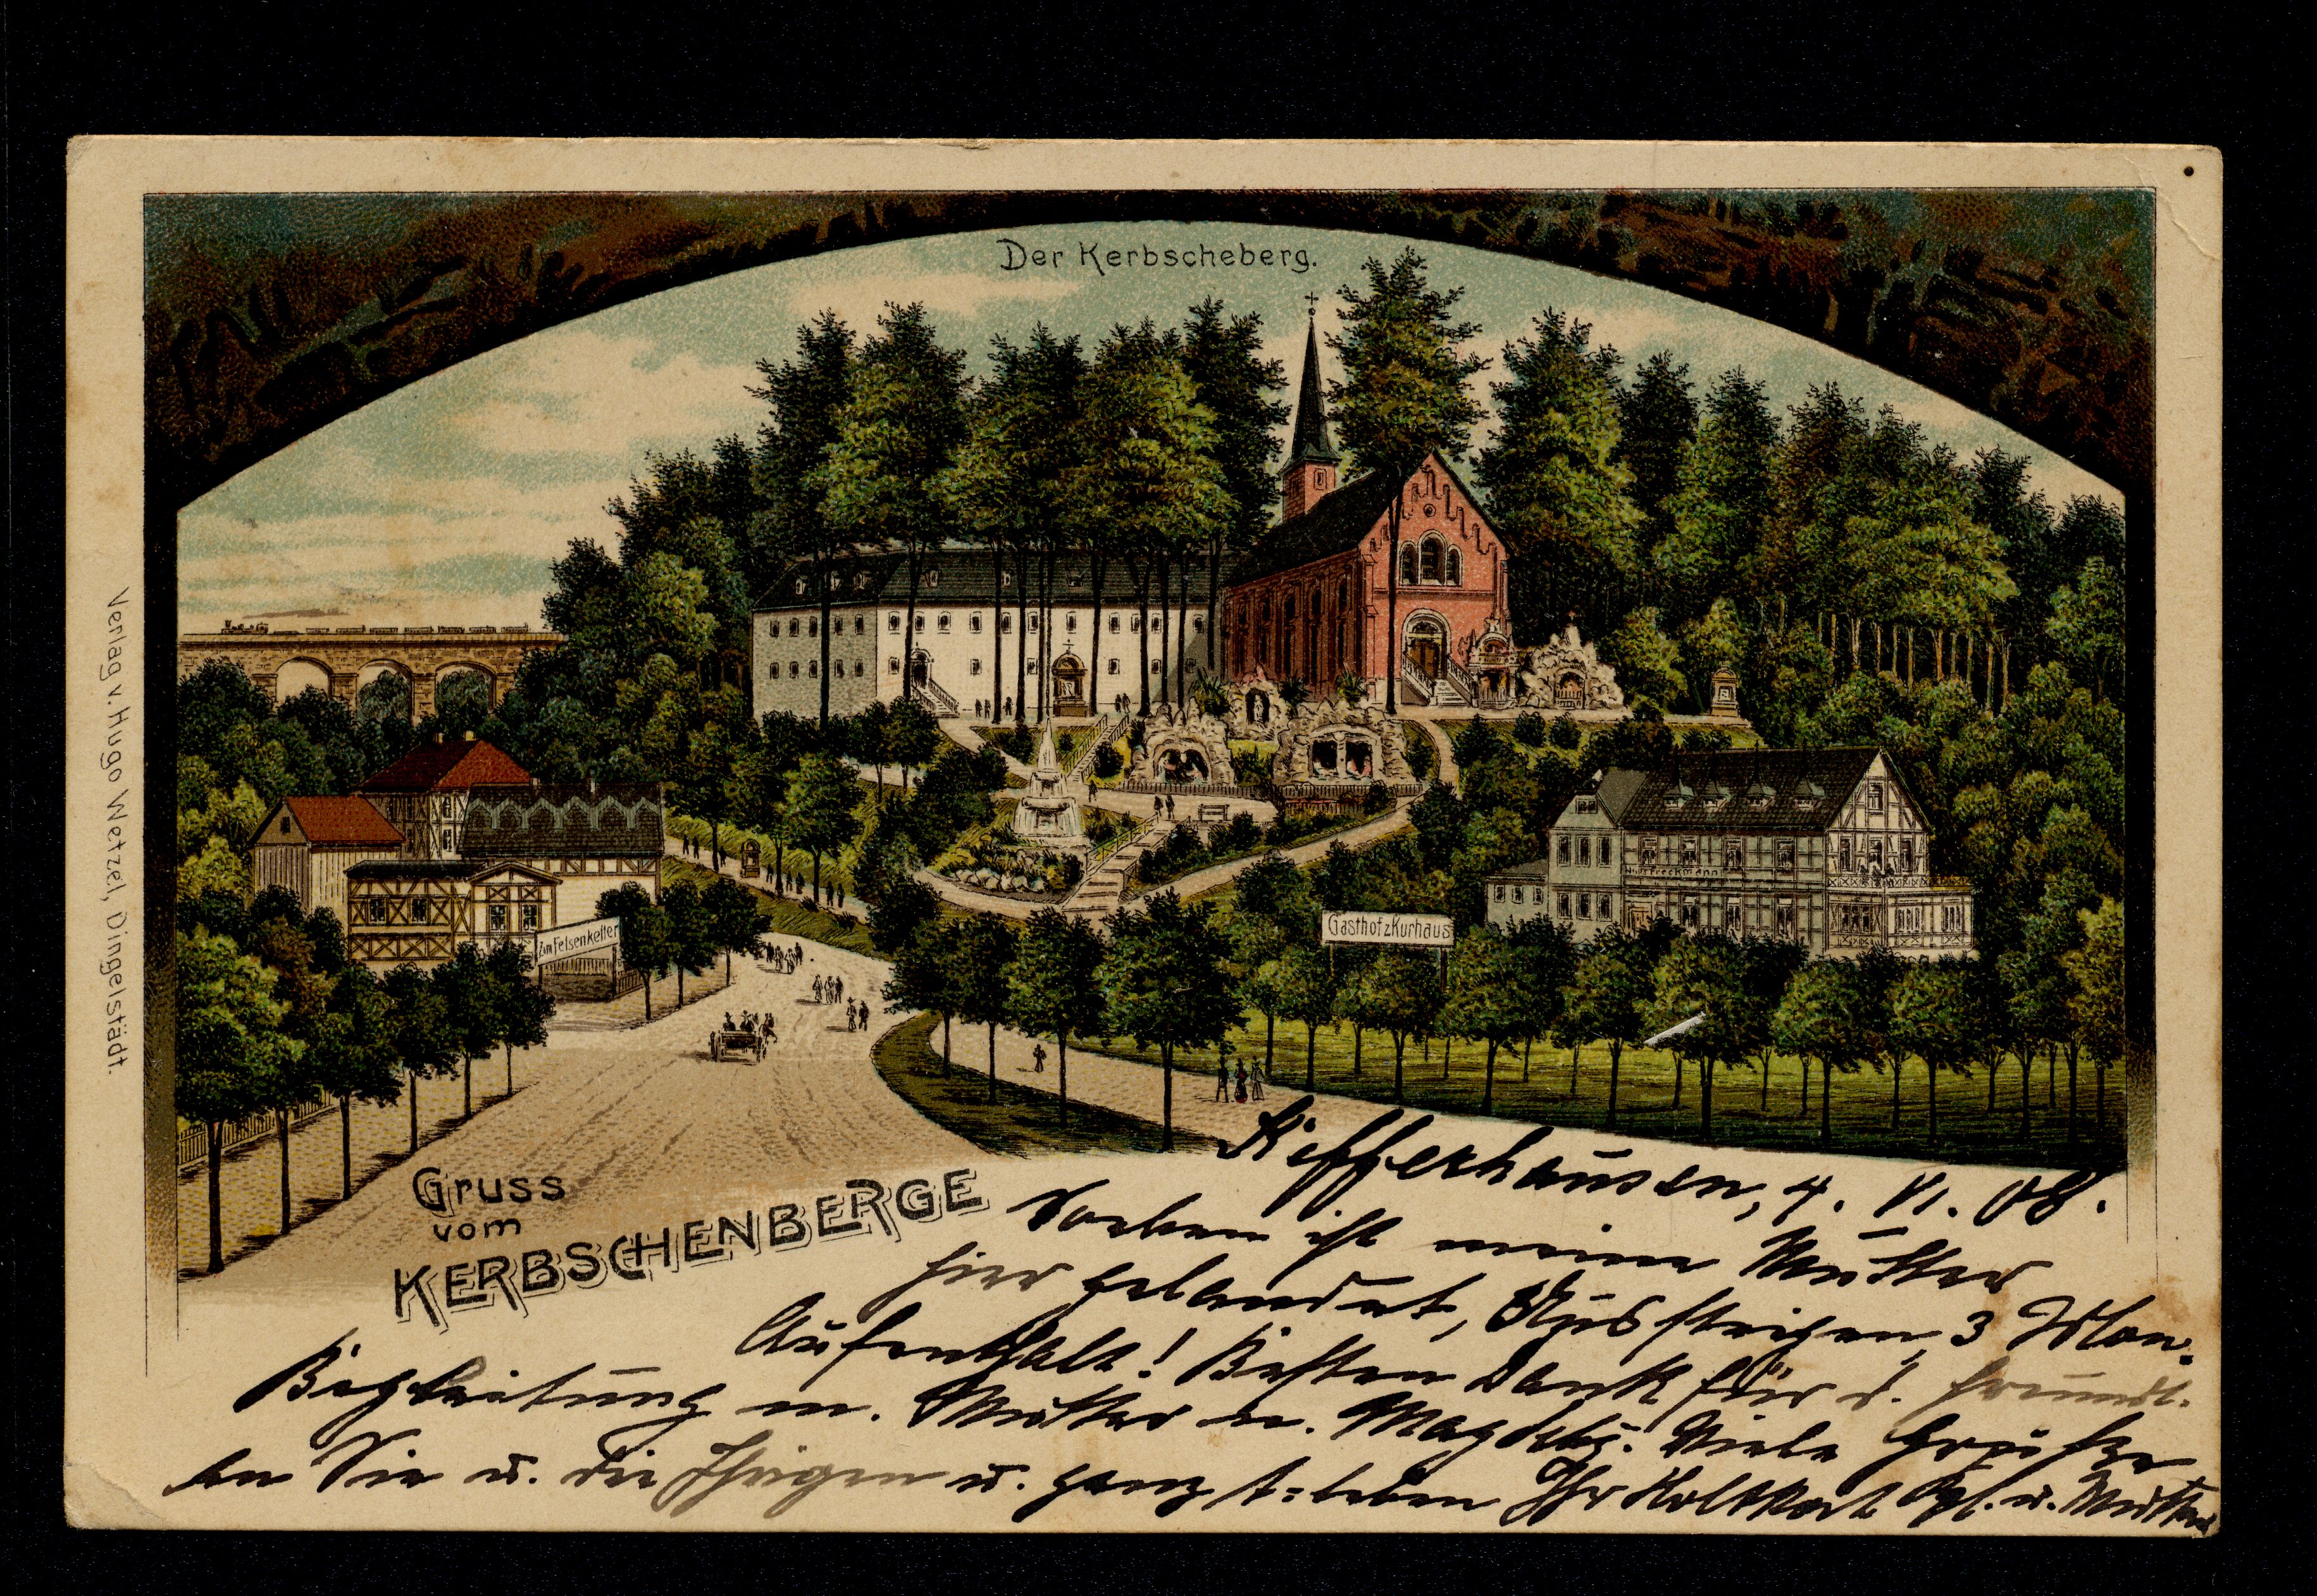 Der Kerbscheberg.
Verlag v. Hugo Wetzel, Dingelstädt.
Zum Felsenkeller
Gasthof z Kurhaus
Gruss
vom
KERBSCHENBERGE
Kefferhausen, 4. VI. 08.
Soeben ist meine Mutter
hier gelandet, Aussteigen, 3 Mon.
Aufenthalt! Besten Dank für d. freundl.
Begleitung m. Mutter n. Magdebg. Viele Grüße
an Sie u. die Ihrigen u. ganz Ihr u. Mutter